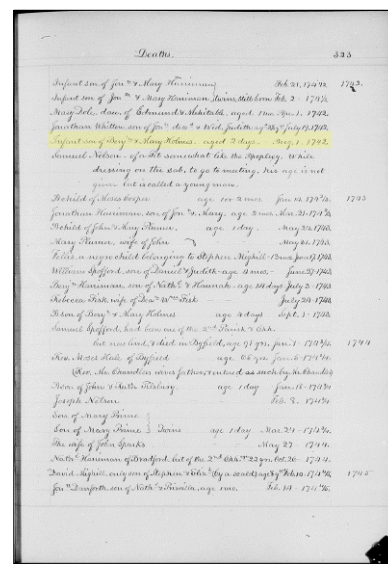 Deaths. 323
Infant son of Jonⁿ & Mary Harriman Feb. 21, 174½. 1742.
Infant son of Jonⁿ & Mary Harriman, twins, still born Feb. 2 - 174½
Mary Dole, dau. of Edmund & Mehitable, aged 1 mo. Apr. 1. 1742.
Jonathan Whitten son of Jonⁿ decᵈ & Wid. Judith July 19, 1742.
Infant son of Benjⁿ & Mary Holmes. aged 2 days. Aug. 1. 1742.
Samuel Nelson. of a Fit somewhat like the Apoplexy. While
dressing on the Sab. to go to meeting. his age is not
given but is called a young man.
B child of Moses Cooper age 1 or 2 mos 1743
Jonathan Harriman, son of Jonⁿ & Mary. age 2 mos. Mar. 21. 174¾
B child of John & Mary Plumer. age 1 day. May 23. 1743.
Mary Plumer, wife of John May 1743.
a negro child belonging to Stephen Mighill 1743.
William Spofford, son of Daniel & Judith age mos June 27. 1743.
Benjⁿ Harriman, son of Nathˡ & Hannah. age 14 days July 2. 1743.
Rebecca Fisk, wife of Deaⁿ Wᵐ Fisk July 24. 1743.
B son of Benjⁿ & Mary Holmes age 4 days Sept. 1. 1743.
Samuel Spofford, had been one of the 2ⁿᵈ Parish & Chh.
but now lived, & died in Byfield, age 91 yrs, Jan. 1 1744
Rev. Moses Hale of Byfield age 66 yrs Jan.
(Rev. Mr. Chandlers wives father, & entered as such by Mr. Chandler)
B son of John & Ruth Tilsbury. age 1 day Jan. 16
Joseph Nelson Feb. 8.
Son of Mary Prime
Son of Mary Prime Twins age 1 day Mar. 24
The wife of John Sparks May 27. 1744.
Nathˡ Harriman of Bradford, but of the 2ⁿᵈ Chh. 22 yrs. Oct. 26. 1744.
David Mighill, only son of Stephen & (by a scald) Feb. 10 1745
Jonⁿ Danforth, son of Nathˡ & Priscilla, age 1 mo. Feb. 14